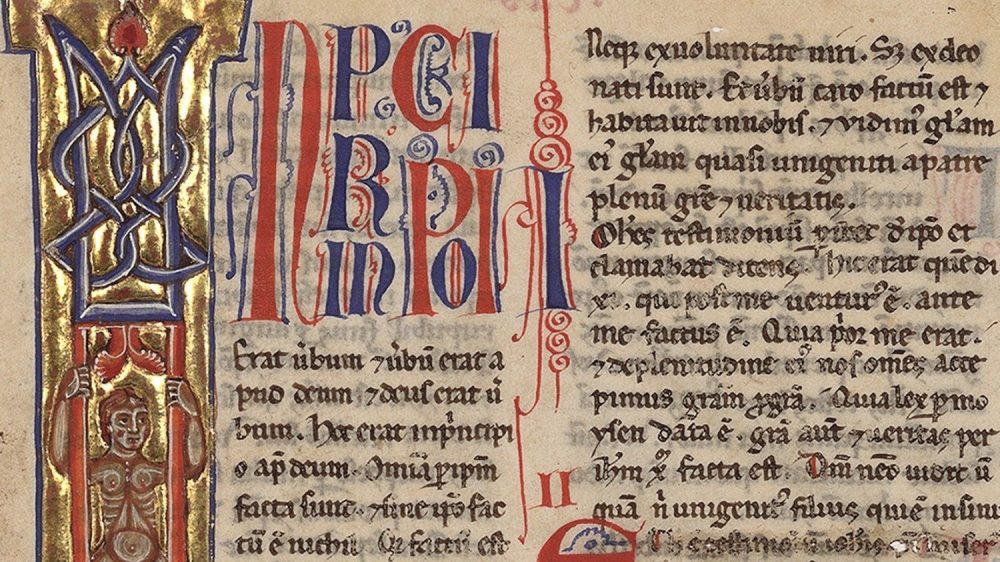 IN PRINCIPIO
Erat ūbum ⁊ ūbū erat a
pud deum ⁊ deus erat ū
bum. Hoc erat inpͥncipi
o ap̄ deum. Om̄ia ꝑ ip̄m
facta sunt. ⁊ sine ip̄o fac
tū ē nichil. Qͦ factū est
Neqꝫ exuoluntate uiri. Sꝫ exdeo
nati sunt. Et ūbū caro factū est ⁊
habitauit innobis. ⁊ vidimꝰ gl̄am
eiꝰ gl̄am quasi unigeniti apatre
plenū gr̄e ⁊ ueritatis.
Ioh̄es testimoniū ꝑhibet dͥ ip̄o et
clamabat dicens. Hic erat quē di
xi. qui post me uenturꝰ ē. ante
me factus ē. Quia pͥor me erat.
⁊ deplenitudine eiꝰ nos om̄es acce
pimus gr̄am ꝓ gr̄a. Quia lex ꝑ mo
ysen data ē. gr̄a aūt ⁊ ueritas per
ih̄m xͫ facta est. Dm̄ nemo uidit ū
II
quā nͥ unigenitꝰ filius, qui ē insinu